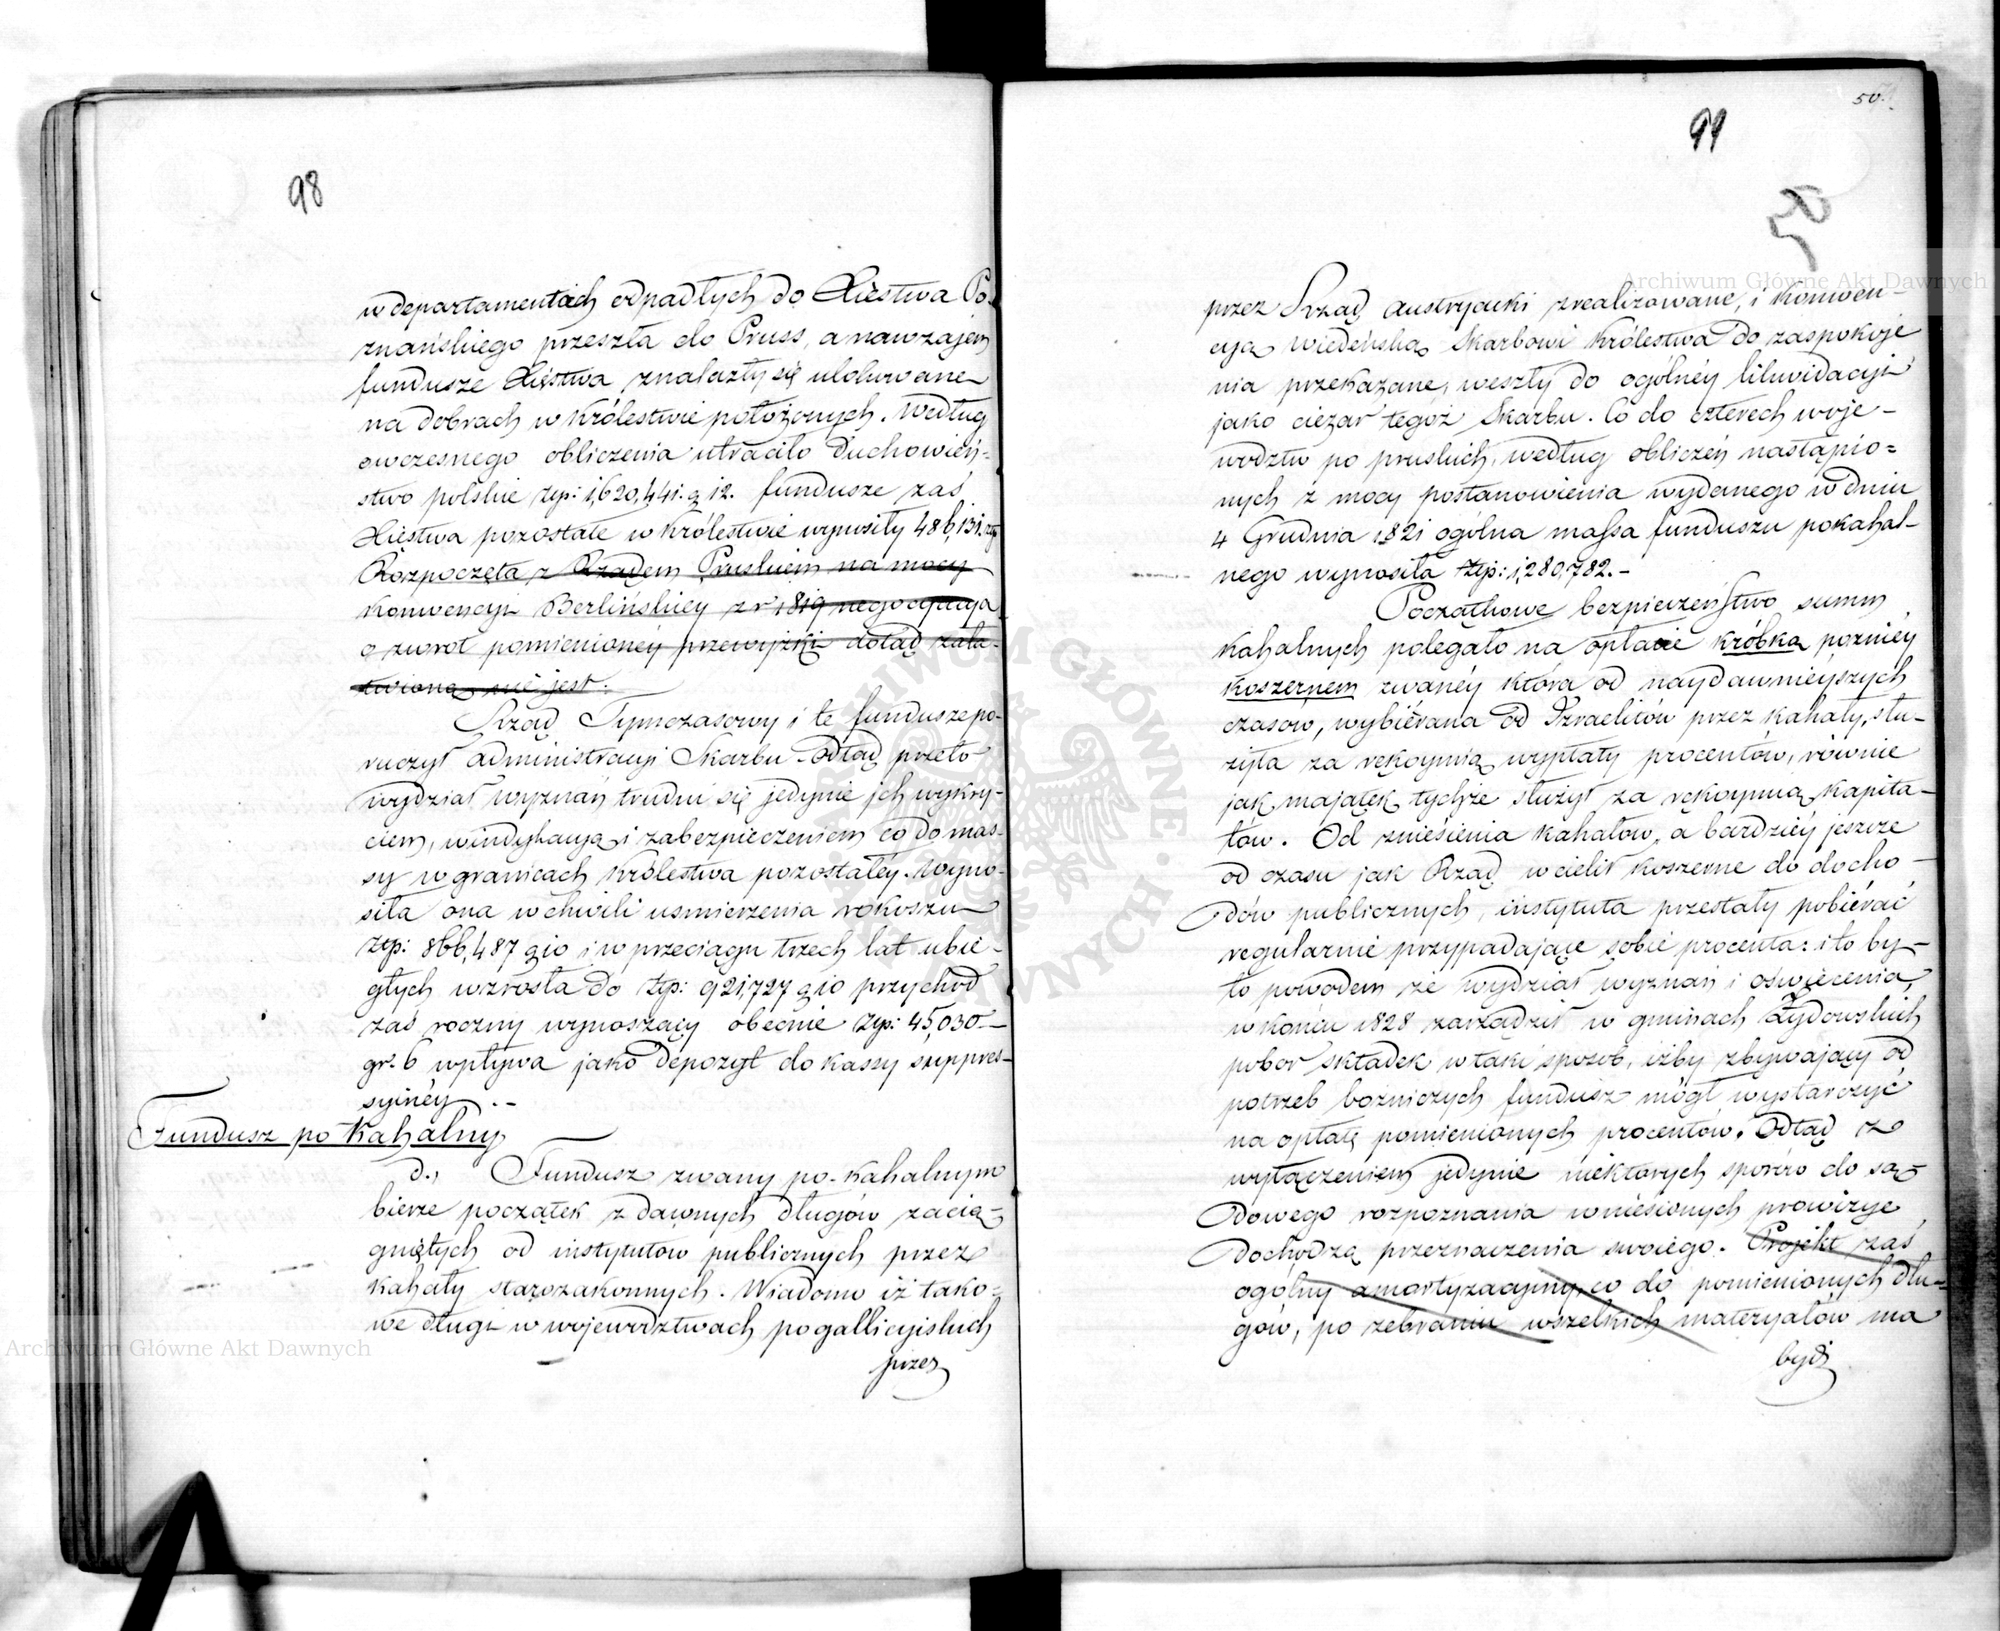 98
w departamentach odpadłych do Xięstwa Po-
znańskiego przeszła do Pruss, a nawzajem
fundusze Xięstwa znalazły się ulokowane
na dobrach w Królestwie położonych. Według
owczesnego obliczenia utraciło Duchowień=
stwo polskie złp: 1,620,441. g 12. fundusze zaś
Xięstwa pozostałe w Królestwie wynosiły 486,131. złp
Rozpoczęta z Rządem Pruskiem na mocy
Konwencyi Berlińskiey z r 1819 negocyacya
o zwrot pomienioney przewyżki dotąd zała-
twioną nie jest.
Rząd Tymczasowy i te fundusze po-
ruczył administracyi Skarbu. Odtąd przeto
wydział wyznań trudni się jedynie ich wykry-
ciem, windykacyą i zabezpieczeniem co do mas-
sy w granicach Królestwa pozostałéy. Wyno-
siła ona w chwili usmierzenia rokoszu
złp: 866,487 g 10 i w przeciągu trzech lat ubie-
głych wzrosła do złp: 921,727 g 10 przychod
zaś roczny wynoszący obecnie złp: 45,030
gr. 6 wpływa jako depozyt do kassy suppres-
syinéy.
Fundusz po Kahalny
d., Fundusz zwany po-kahalnym
bierze początek z dawnych długów zacią-
gniętych od instytutow publicznych przez
kahały starozakonnych. Wiadomo iż tako-
we długi w województwach pogallicyiskich
przez
50.
99
50
przez Rząd austryacki zrealizowane, i konwen-
cyą wiedeńską Skarbowi Królestwa do zaspokoje
nia przekazane, weszły do ogólnéy likwidacyi
jako ciężar tegoż Skarbu. Co do czterech woje-
wodztw po pruskich, według obliczeń nastąpio=
nych z mocy postanowienia wydanego w dniu
4 Grudnia 1821 ogólna massa funduszu pokahal-
nego wynosiła złp: 1,280,782.-
Początkowe bezpieczeństwo summ
kahalnych polegało na opłacie króbką pozniéy
koszernem zwanéy która od naydawnieyszych
czasow, wybiérana od Izraelitów przez kahały, słu-
żyła za rękoymią wypłaty procentów, równie
jak majątek tychże służył za rękoymią kapita-
łów. Od zniesienia kahałow, a bardziéy jeszcze
od czasu jak Rząd wcielił koszerne do docho-
dów publicznych, instytuta przestały pobiérać
regularnie przypadające sobie procenta: i to by-
ło powodem że wydział wyznań i oświecenia,
w końcu 1828 zarządził w gminach Żydowskich
pobor składek w taki sposob, iżby zbywający od
potrzeb bożniczych fundusz mógł wystarczyć
na opłatę pomienionych procentów. Odtąd z
wyłączeniem jedynie niektorych sporów do są-
dowego rozpoznania wniesionych prowizye
dochodzą przeznaczenia swoiego. Projekt zaś
ogólny amortyzacyiny, co do pomienionych dłu-
gów, po zebraniu wszelkich materyałów ma
bydź
Archiwum Główne Akt Dawnych
Archiwum Główne Akt Dawnych
ARCHIWUM GŁÓWNE AKT DAWNYCH